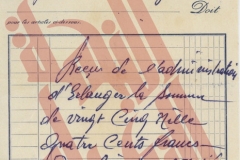 Doit
pour les articles
Reçu de l'administration
d'Erlanger la somme
de vingt Cinq Mille
quatre Cents francs